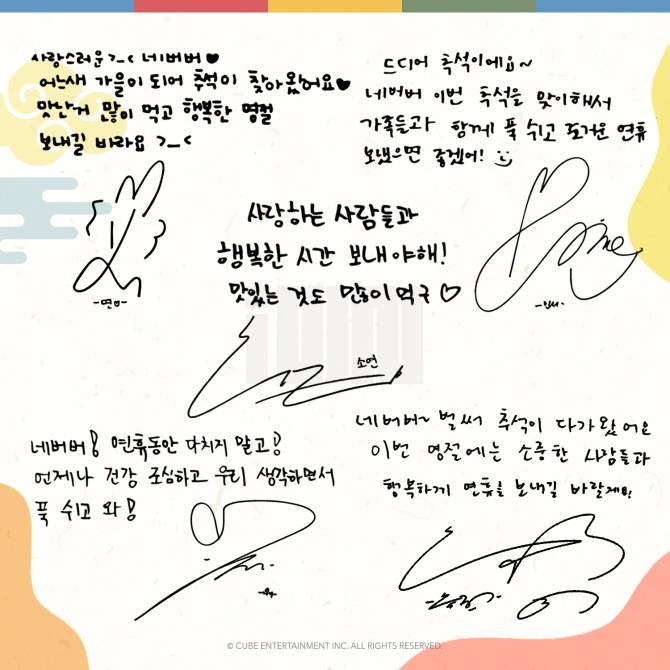 사랑스러운 >_< 네버버♥
어느새 가을이 되어 추석이 찾아왔어요♥
맛난거 많이 먹고 행복한 명절
보내길 바라요 >_<
-면이-
드디어 추석이에요~
네버버 이번 추석을 맞이해서
가족들과 함께 푹 쉬고 즐거운 연휴
보냈으면 좋겠어!
사랑하는 사람들과
행복한 시간 보내야해!
맛있는 것도 많이 먹구 ♡
소연
네버버! 연휴동안 다치지 말고!
언제나 건강 조심하고 우리 생각하면서
푹 쉬고 와!
네버버~ 벌써 추석이 다가왔어요
이번 명절에는 소중한 사람들과
행복하게 연휴를 보내길 바랄게요!
© CUBE ENTERTAINMENT INC. ALL RIGHTS RESERVED.